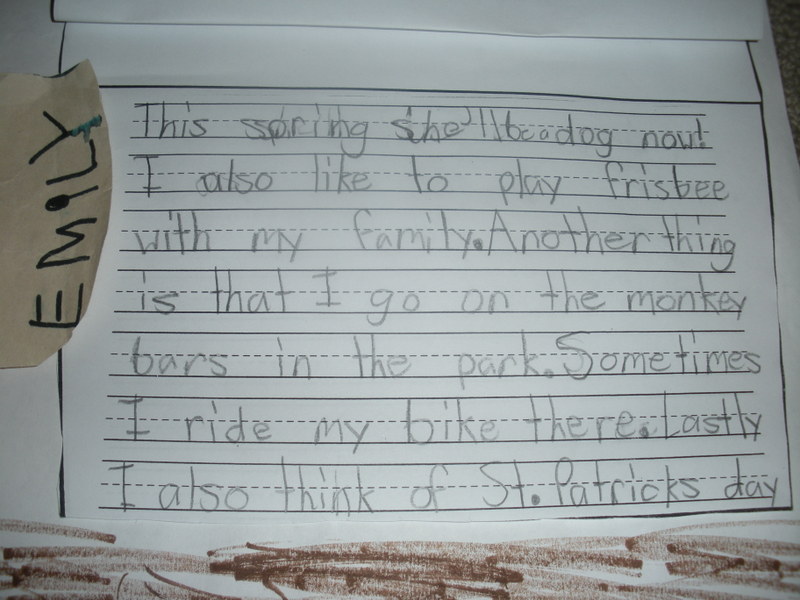 EMILY
This spring she'll be a dog now!
I also like to play frisbee
with my family. Another thing
is that I go on the monkey
bars in the park. Sometimes
I ride my bike there. Lastly
I also think of St. Patricks day